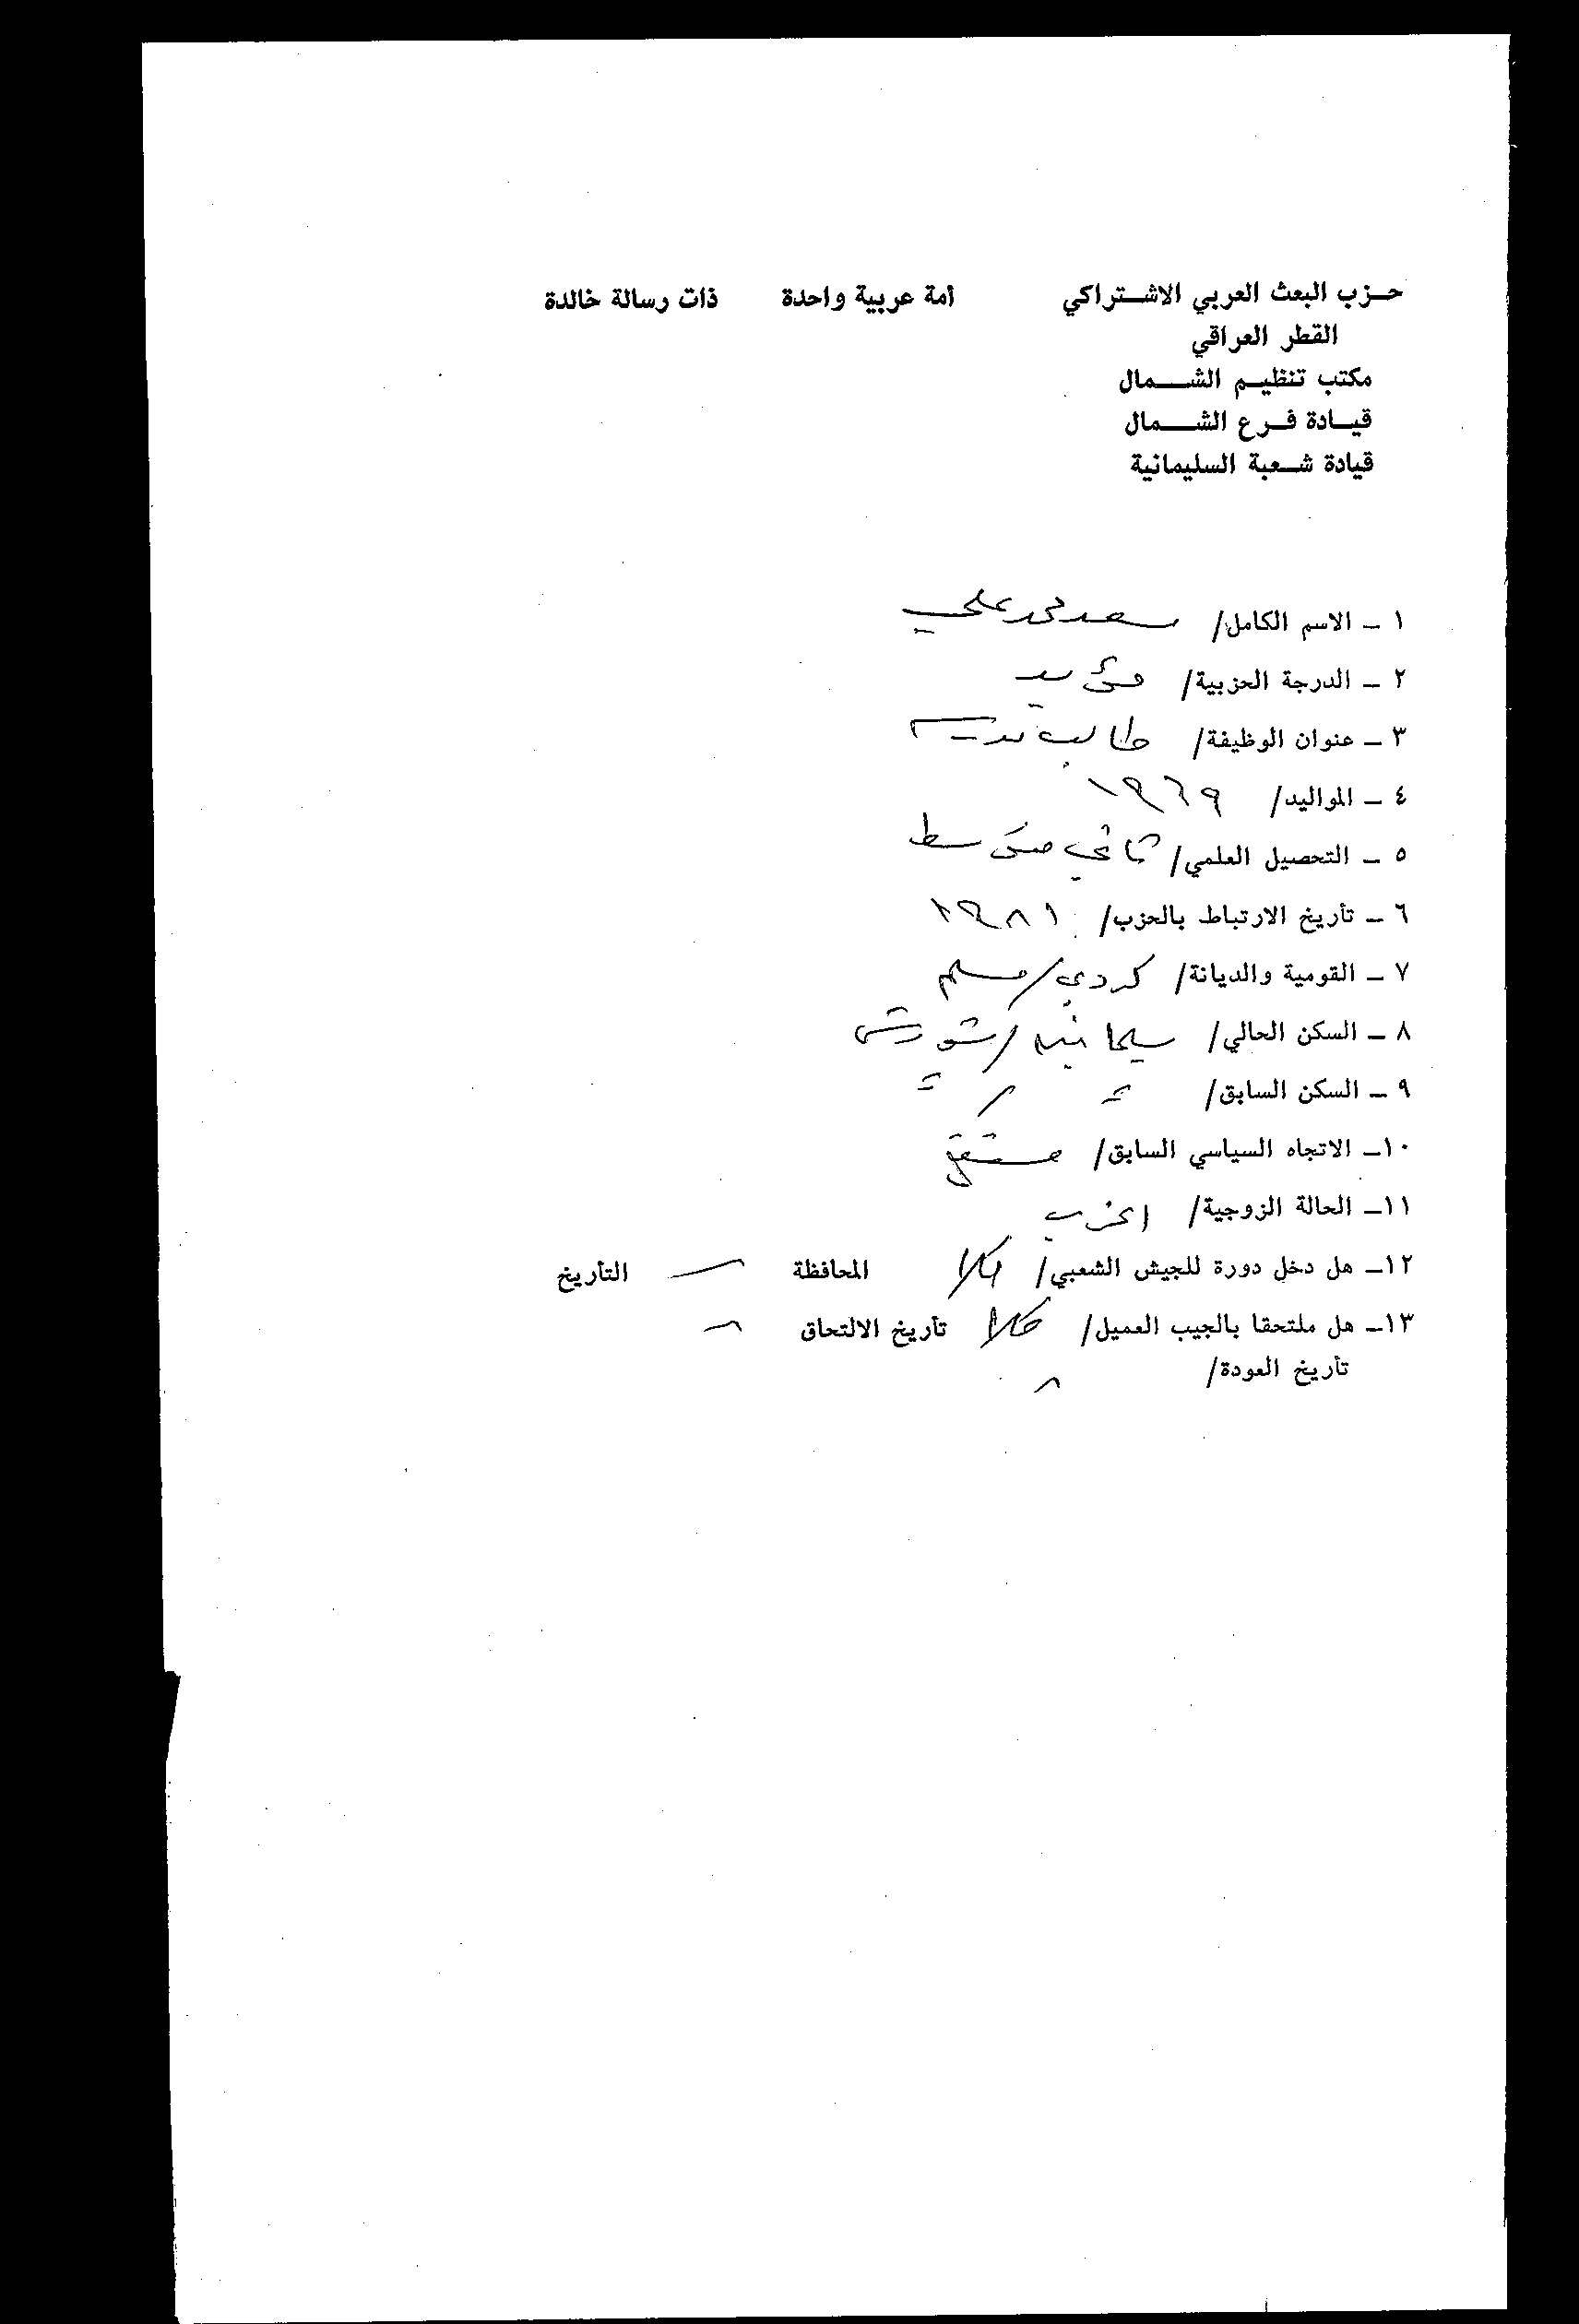 حزب البعث العربي الاشتراكي أمة عربية واحدة ذات رسالة خالدة
القطر العراقي
مكتب تنظيم الشمال
قيادة فرع الشمال
قيادة شعبة السليمانية
١ - الاسم الكامل/ سعد محمد علي
٢ - الدرجة الحزبية/ مؤيد
٣ - عنوان الوظيفة/ طالب
٤ - المواليد/ ١٩٦٩
٥ - التحصيل العلمي/ ثاني متوسط
٦ - تأريخ الارتباط بالحزب/ ١٩٨١
٧ - القومية والديانة/ كردي/مسلم
٨ - السكن الحالي/ سليمانية/شورش
٩ - السكن السابق/ = / =
١٠- الاتجاه السياسي السابق/ مستقل
١١- الحالة الزوجية/ اعزب
١٢- هل دخل دورة للجيش الشعبي/ كلا المحافظة - التأريخ
١٣- هل ملتحقا بالجيب العميل/ كلا تأريخ الالتحاق -
تأريخ العودة/ -